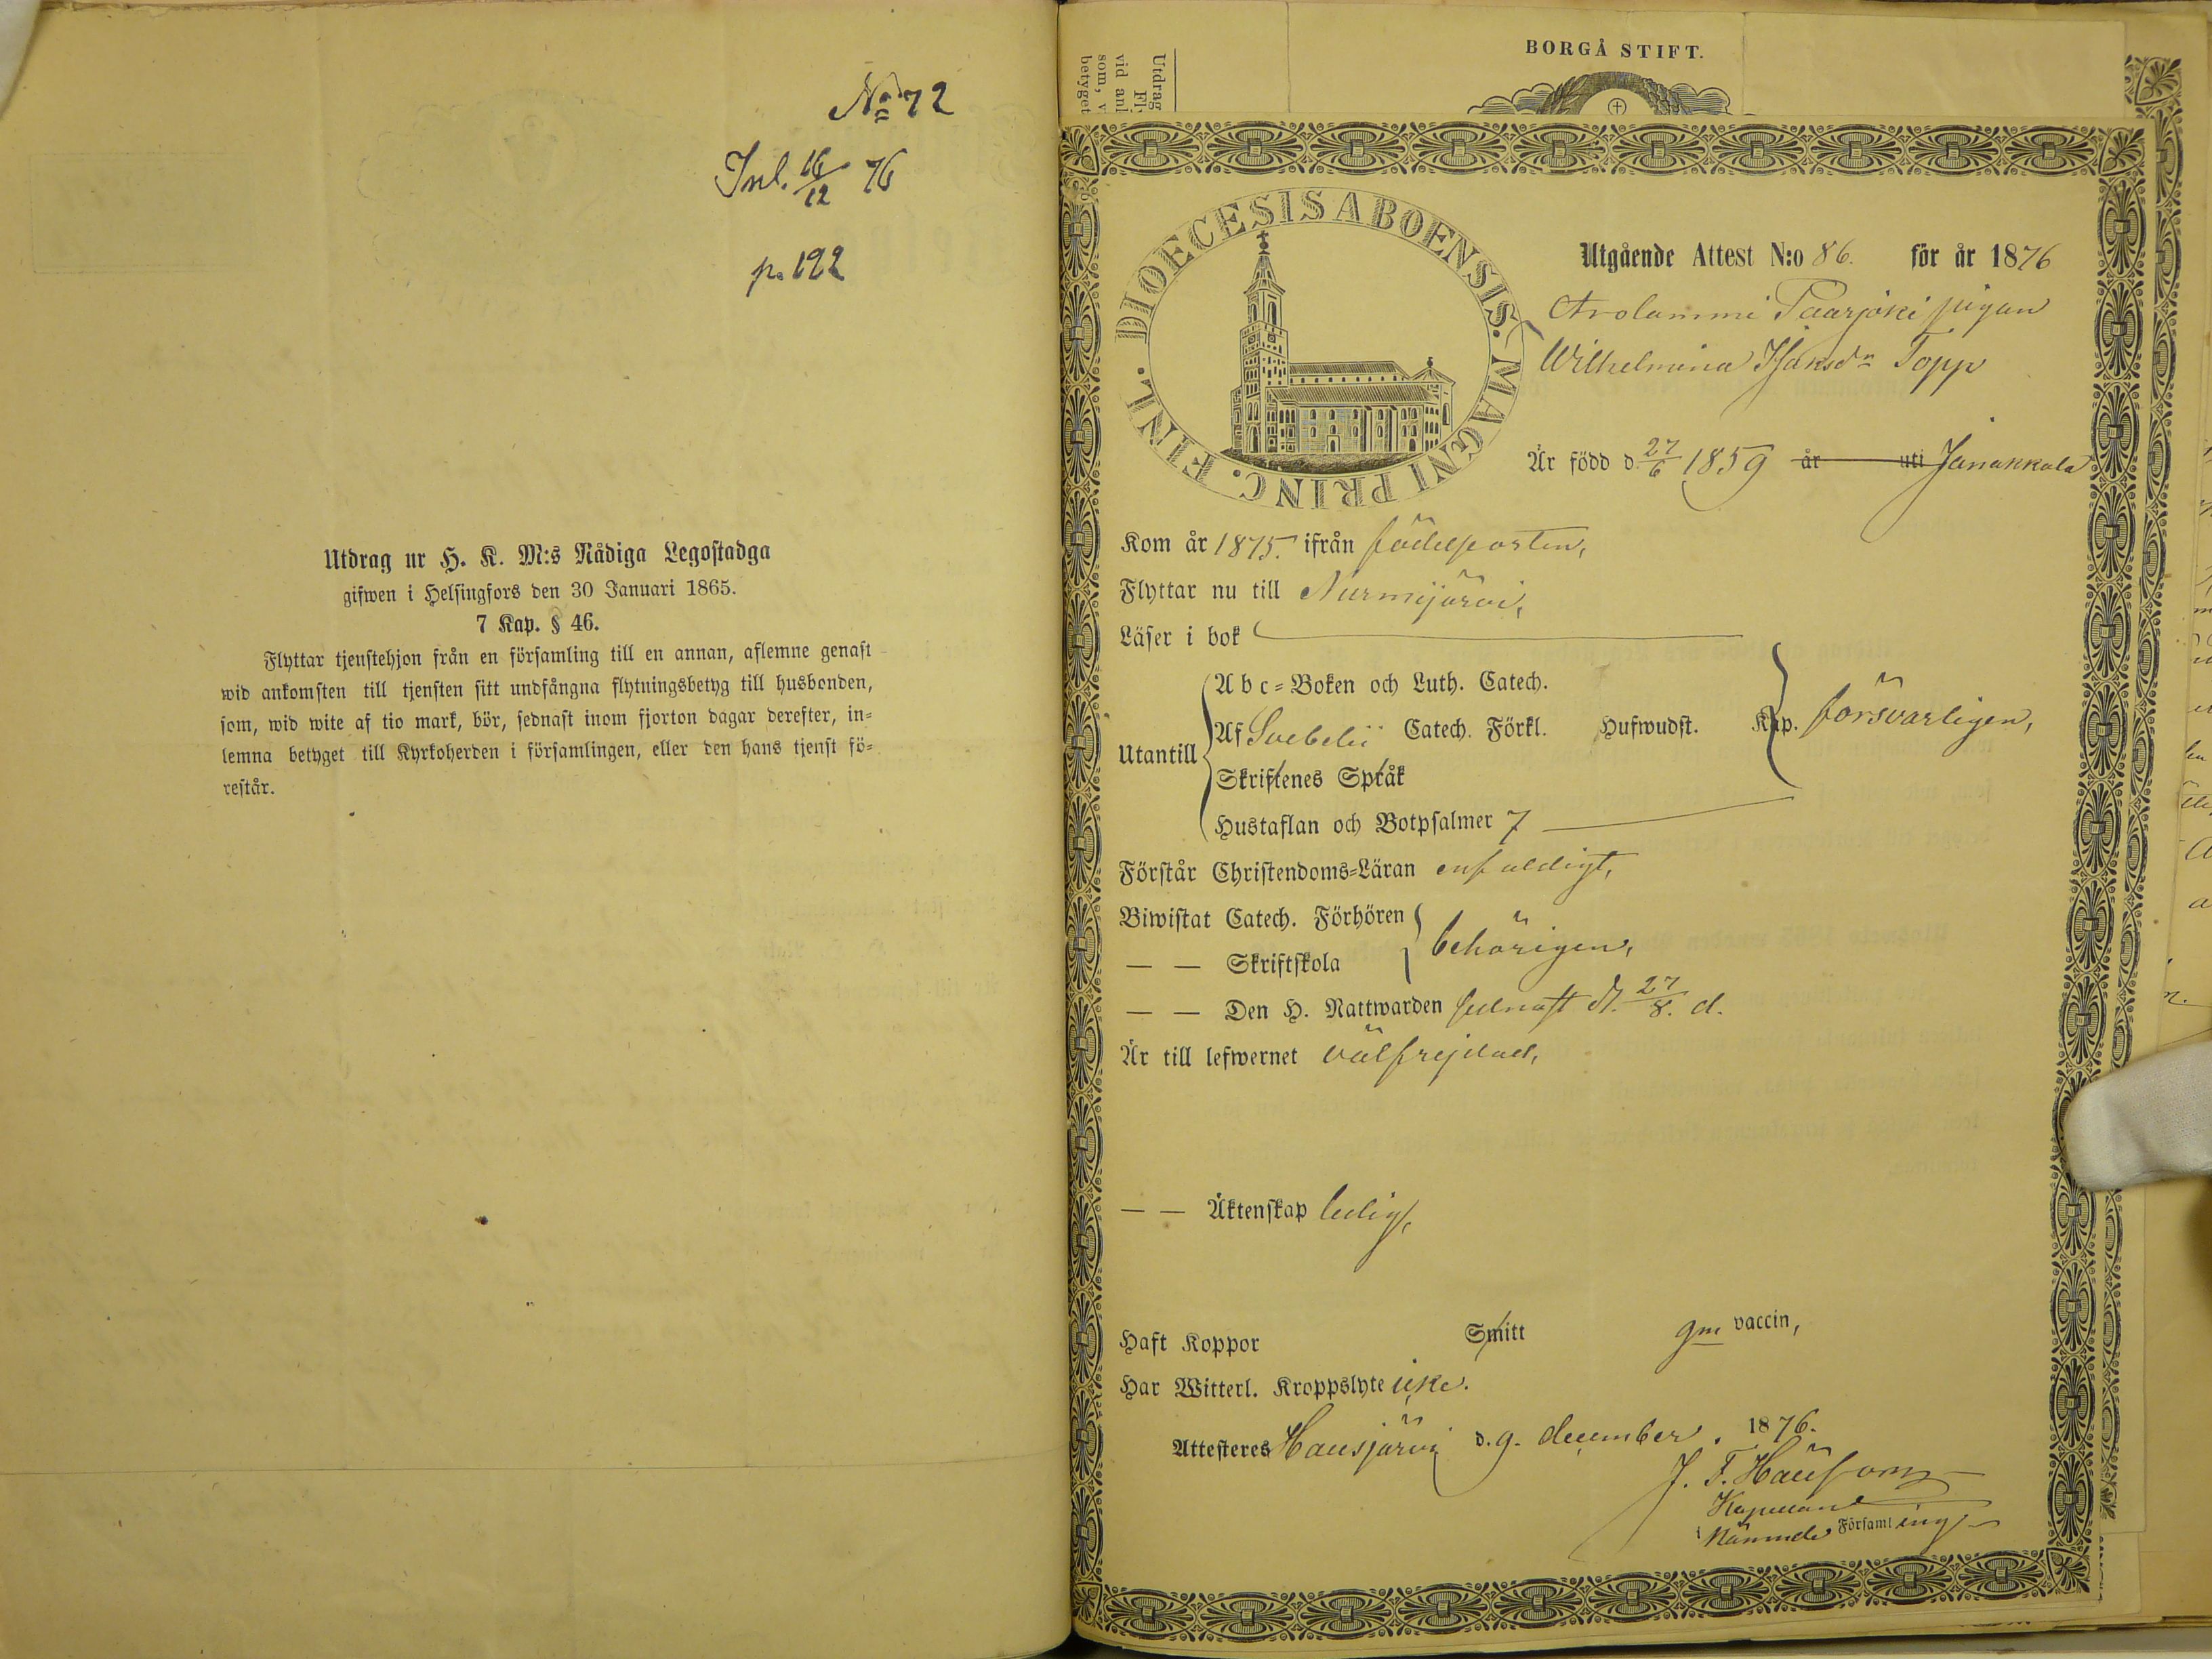 No 72
Inl. 16/12 76
p. 192
Utdrag ur H. K. M:s Nådiga Legostadga
gifwen i Helsingfors den 30 Januari 1865.
7 Kap. § 46.
Flyttar tjenstehjon från en församling till en annan, aflemne genast
wid ankomsten till tjensten sitt undfångna flytningsbetyg till husbonden,
som, wid wite af tio mark, bör, sednast inom fjorton dagar derefter, in-
lemna betyget till Kyrkoherden i församlingen, eller den hans tjenst fö-
restår.
Utdrag
vid anl
som, v
betyget
BORGÅ STIFT.
DIOECESIS ABOENSIS. MAGNI PRINC. FINL.
Utgående Attest N:o 86. för år 1876
Arolammi Paarjoki pigan
Wilhelmina Isaksdr Topp
Är född d. 27/6 1859 år uti Janakkala
Kom år 1875. ifrån födelseorten,
Flyttar nu till Nurmijärvi,
Läser i bok
A b c-Boken och Luth. Catech.
Utantill Af Svebelii Catech. Förkl. Hufwudst. Kap. försvarligen,
Skriftenes Språk
Hustaflan och Botpsalmer 7
Förstår Christendoms-Läran enfaldigt,
Biwistat Catech. Förhören
— — Skriftskola behörigen,
— — Den H. Nattwarden sednast d. 27/8. d.
Är till lefwernet välfrejdad,
— — Äktenskap ledig,
Haft Koppor Smitt gm vaccin,
Har Witterl. Kroppslyte icke.
Attesteras Hausjärvi d. 9. december. 1876.
J. F.
Kapellan
i nämnde Församling